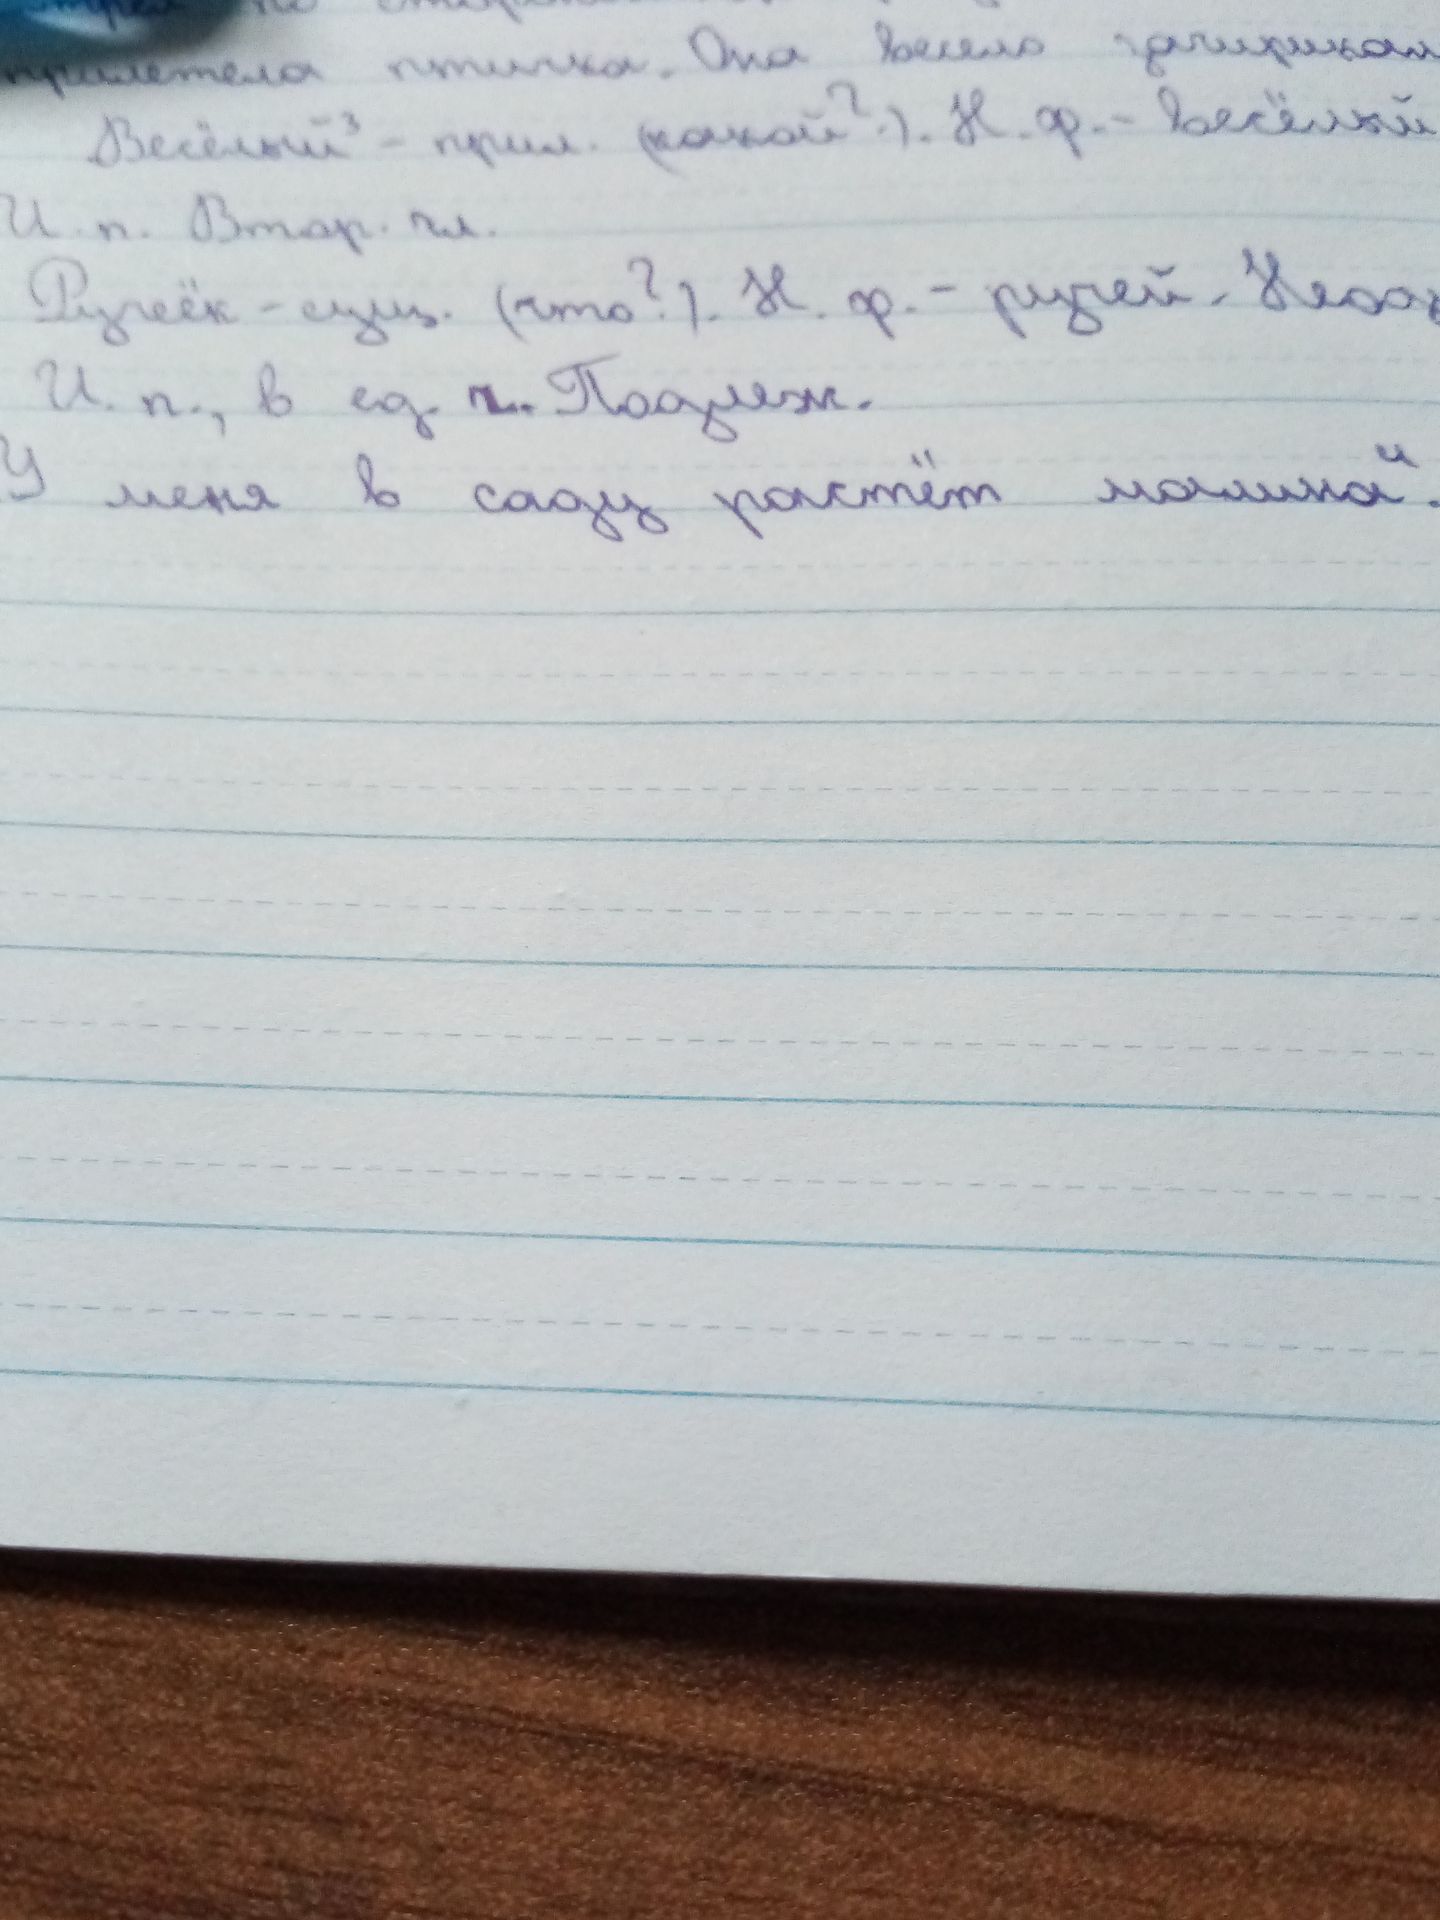 прилетела птичка. Она весело зачирикал
Весёлый³ - прил. (какой?). Н. ф. - весёлый
И. п. Втор. чл.
Ручеёк - сущ. (что?). Н. ф. - ручей. Неод
И. п., в ед. ч. Подлеж.
У меня в саду растёт малина и.